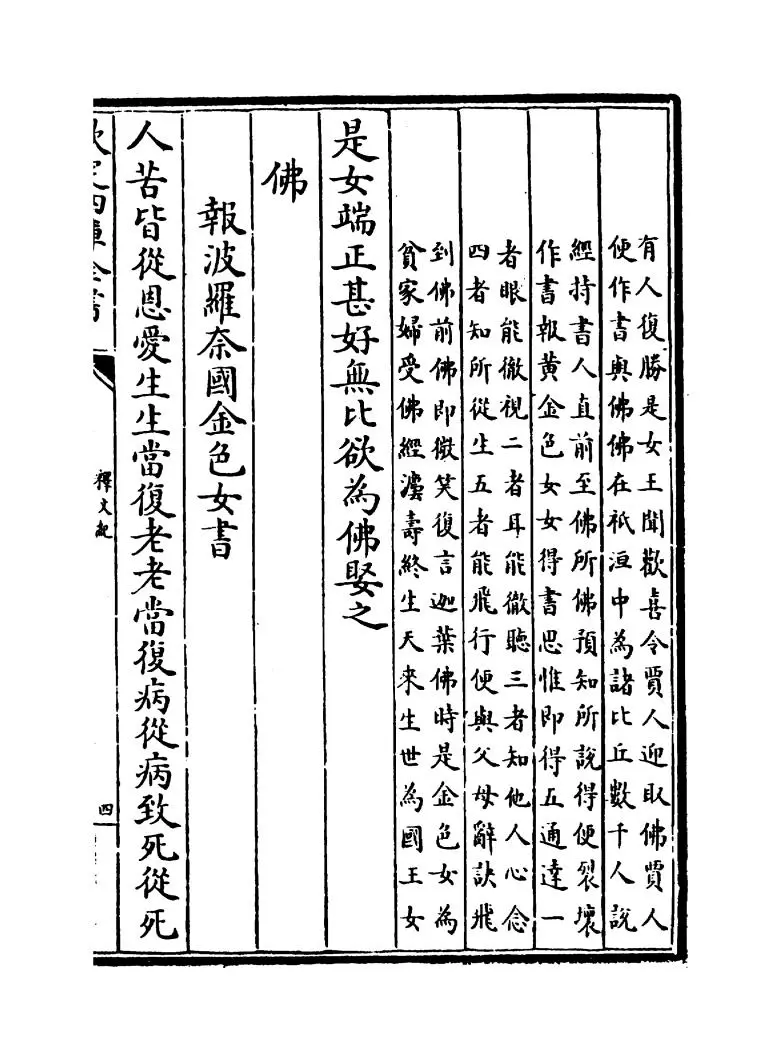 有人復勝是女王聞歡喜令賈人迎取佛賈人
便作書與佛佛在祇洹中為諸比丘數千人說
經持書人直前至佛所佛預知所說得便裂壞
作書報黃金色女女得書思惟即得五通達一
者眼能徹視二者耳能徹聽三者知他人心念
四者知所從生五者能飛行便與父母辭訣飛
到佛前佛即微笑復言迦葉佛時是金色女為
貧家婦受佛經瀆壽終生天來生世為國王女
是女端正甚好無比欲為佛娶之
佛
報波羅奈國金色女書
人苦皆從恩愛生生當復老老當復病從病致死從死
欽定四庫全書
釋文紀
四